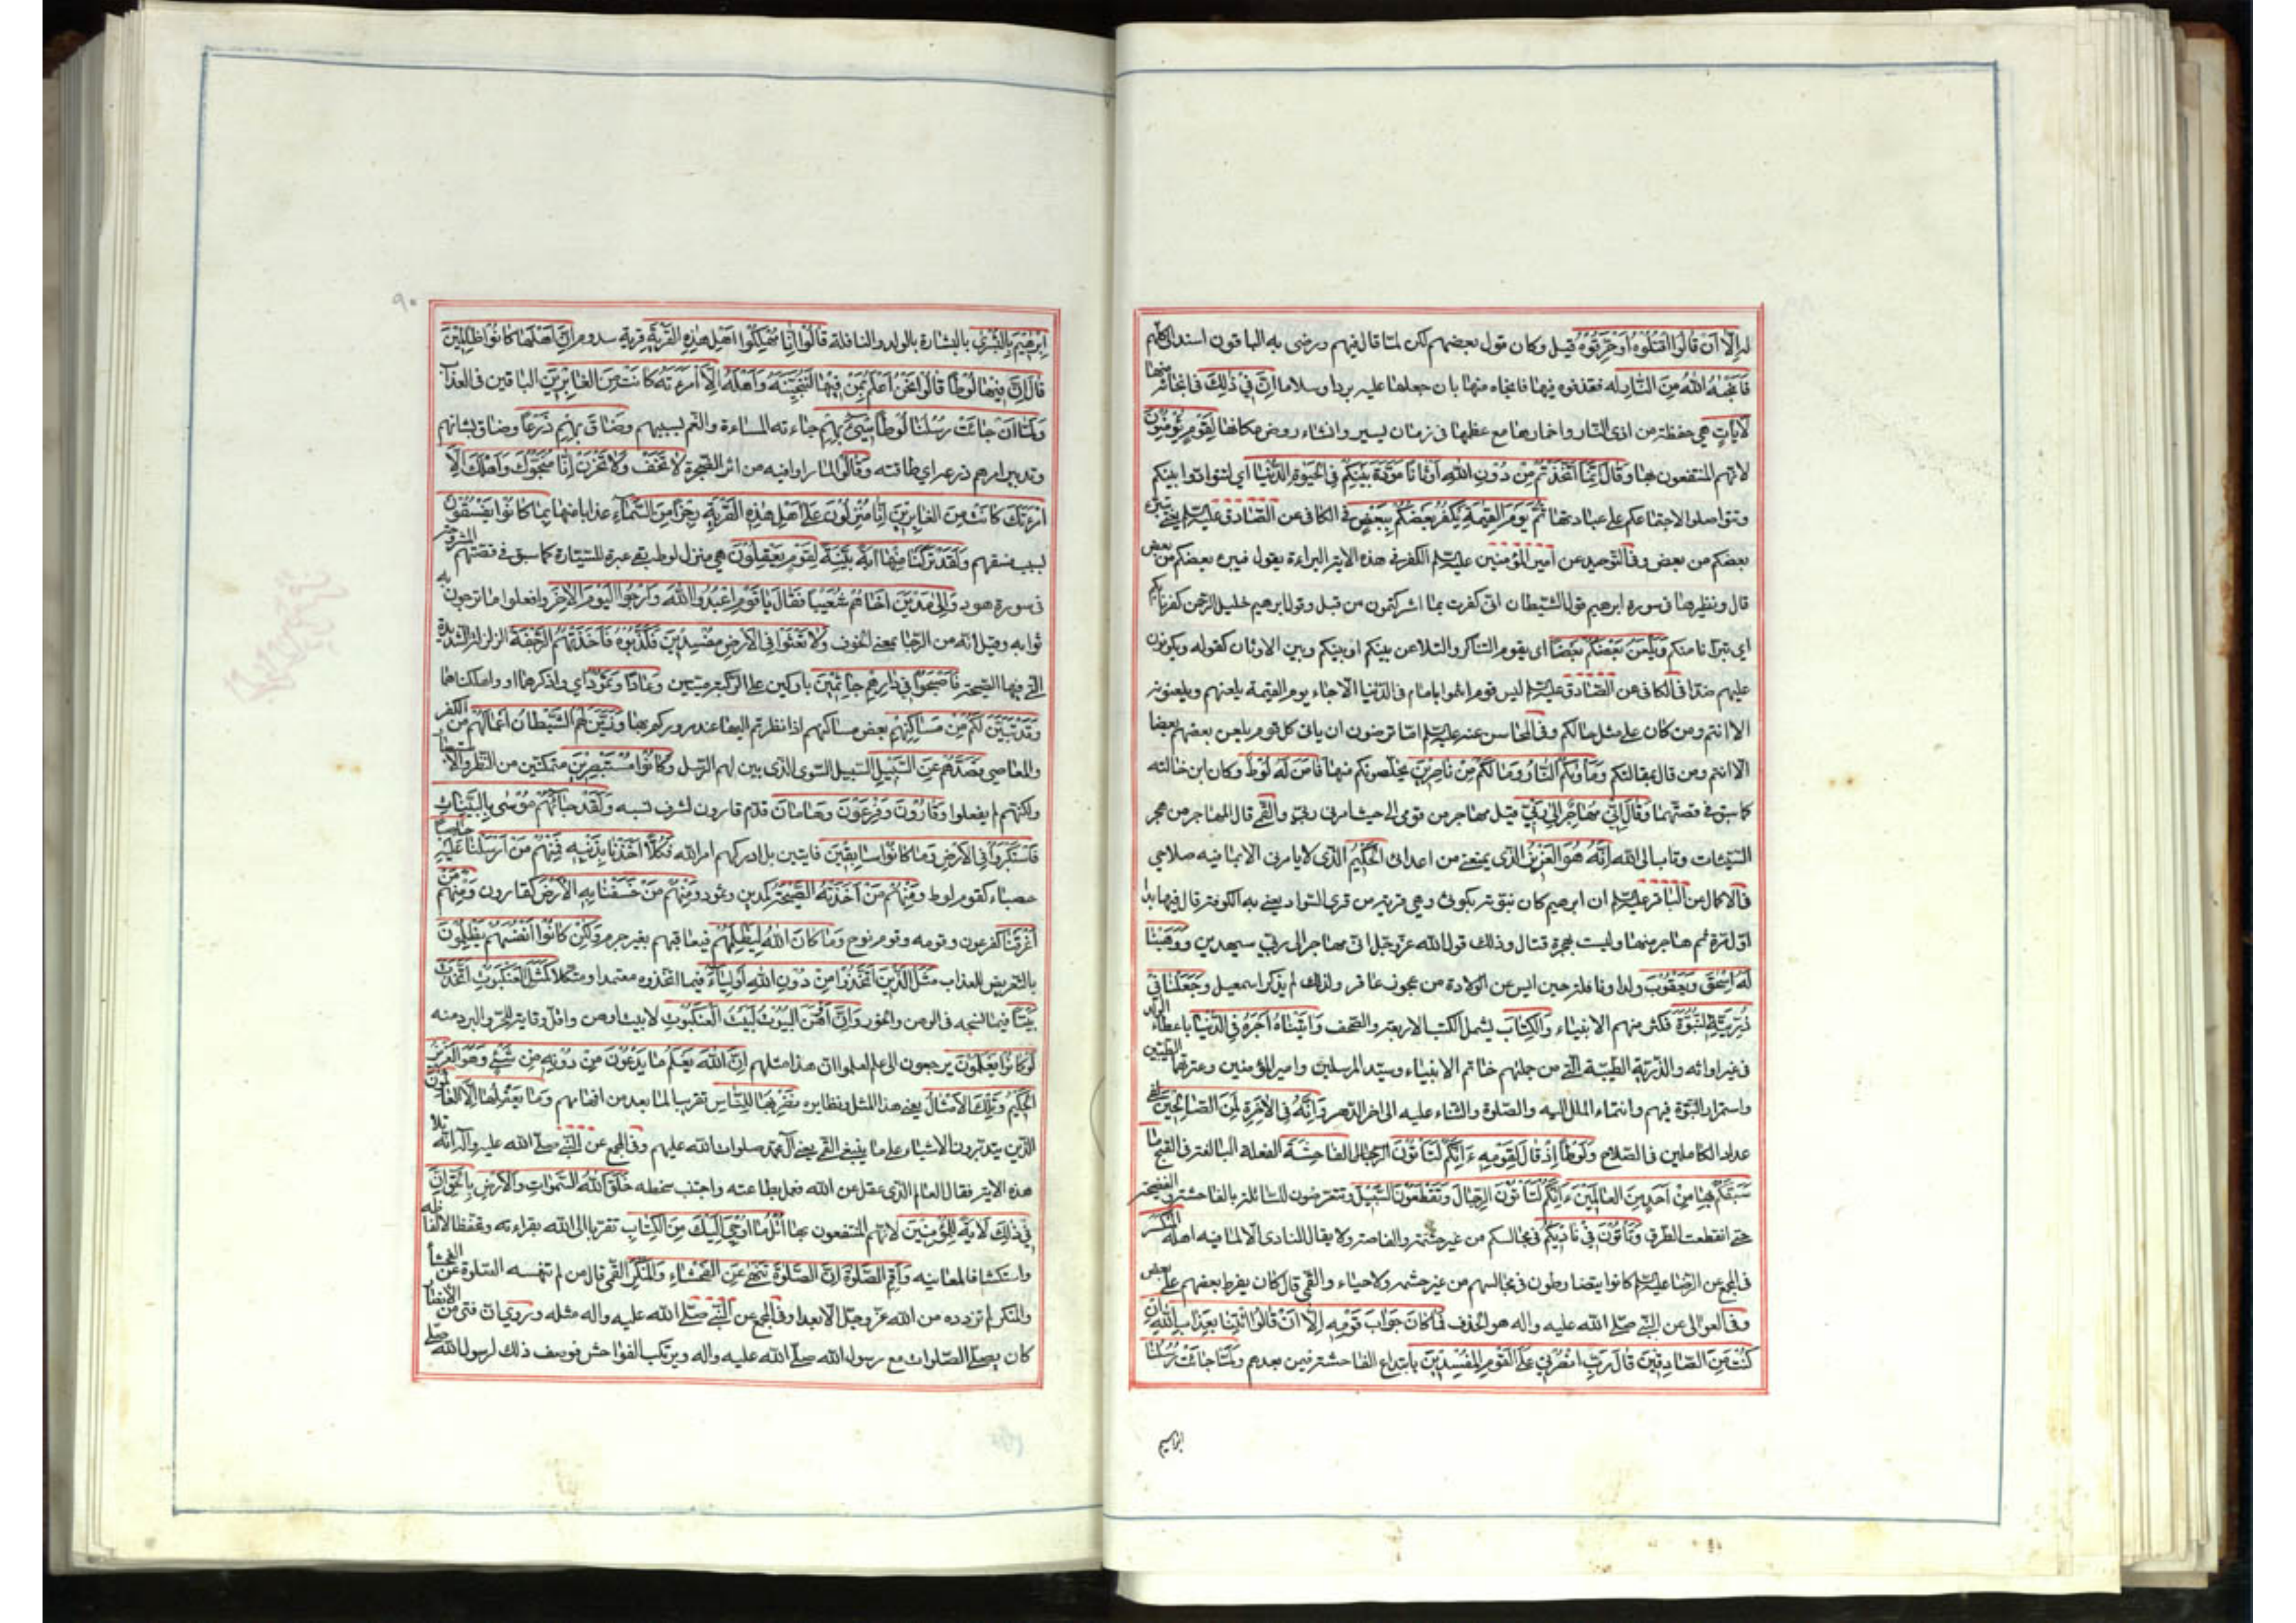 له إِلَّا أَنْ قَالُوا اقْتُلُوهُ أَوْ حَرِّقُوهُ قيل وكان قول بعضهم لكن لمّا قال فيهم ورضى به الباقون اسند الى كلّهم
فَأَنْجٰهُ اللهُ مِنَ النَّارِ له فقذفوه فيها فانجاه منها بان جعلها عليه بردا وسلاما إِنَّ فِي ذٰلِكَ فى انجائه منها
لَآيَاتٍ هي حفظه من اذى النّار واخمادها مع عظمها فى زمان يسير وانشاء روض مكانها لِقَوْمٍ يُؤْمِنُونَ
لانّهم المنتفعون بها وَقَالَ إِنَّمَا اتَّخَذْتُمْ مِنْ دُونِ اللهِ أَوْثَانًا مَوَدَّةَ بَيْنِكُمْ فِي الْحَيٰوةِ الدُّنْيَا اى لتتوادّوا بينكم
وتتواصلوا لاجتماعكم على عبادتها ثُمَّ يَوْمَ الْقِيٰمَةِ يَكْفُرُ بَعْضُكُمْ بِبَعْضٍ فى الكافى عن الصّادق عليه السّلم يعنى يتبرّء
بعضكم من بعض وفى التّوحيد عن امير المؤمنين عليه السّلم الكفر فى هذه الاية البراءة يقول فيبرء بعضكم من بعض
قال ونظيرها فى سورة ابرهيم قول الشّيطان انّى كفرت بما اشركتمون من قبل وقول ابرهيم خليل الرّحمن كفرنا بكم
اى تبرّأنا منكم وَيَلْعَنُ بَعْضُكُمْ بَعْضًا اى يقوم التّناكر والتّلاعن بينكم او بينكم وبين الاوثان كقوله ويكونون
عليهم ضدّا فى الكافى عن الصّادق عليه السّلم ليس قوم ائتمّوا بامام فى الدّنيا الّا جاء يوم القيمة يلعنهم ويلعنونه
الّا انتم ومن كان على مثل حالكم وفى المحاسن عنه عليه السّلم امّا ترضون ان ياتى كلّ قوم يلعن بعضهم بعضا
الّا انتم ومن قال بمقالتكم وَمَأْوٰيكُمُ النَّارُ وَمَا لَكُمْ مِنْ نَاصِرِينَ يخلّصونكم منها فَآمَنَ لَهُ لُوطٌ وكان ابن خالته
كما سبق فى قصّتهما وَقَالَ إِنِّي مُهَاجِرٌ إِلٰى رَبِّي قيل مهاجر من قومى الى حيث امرنى ربّى والقمّى قال المهاجر من هجر
السّيّئات وتاب الى الله إِنَّهُ هُوَ الْعَزِيزُ الّذى يمنعنى من اعدائى الْحَكِيمُ الّذى لا يامرنى الّا بما فيه صلاحى
فى الاكمال عن الباقر عليه السّلم انّ ابرهيم كان نبوّته بكوثى وهي قرية من قرى السّواد يعنى به الكوفة قال فيها بدا
اوّل امره ثم هاجر منها وليست بهجرة قتال وذلك قول الله عزّ وجلّ انّى مهاجر الى ربّى سيهدين وَوَهَبْنَا
لَهُ إِسْحٰقَ وَيَعْقُوبَ ولدا ونافلة حين ايس عن الولادة من عجوز عاقر ولذلك لم يذكر اسمعيل وَجَعَلْنَا فِي
ذُرِّيَّتِهِ النُّبُوَّةَ فكثر منهم الانبياء وَالْكِتَابَ يشمل الكتب الاربعة والصّحف وَآتَيْنَاهُ أَجْرَهُ فِي الدُّنْيَا باعطاء الولد
فى غير اوانه والذّرّيّة الطّيّبة الّتى من جملتهم خاتم الانبياء وسيّد المرسلين وامير المؤمنين وعترتهما الطّيّبين
واستمرار النّبوّة فيهم وانتماء الملل اليه والصّلوة والثناء عليه الى اخر الدّهر وَإِنَّهُ فِي الْآخِرَةِ لَمِنَ الصَّالِحِينَ لفى
عداد الكاملين فى الصّلاح وَلُوطًا إِذْ قَالَ لِقَوْمِهِ ءَإِنَّكُمْ لَتَأْتُونَ الرّجال الْفَاحِشَةَ الفعلة البالغة فى القبح مَا
سَبَقَكُمْ بِهَا مِنْ أَحَدٍ مِنَ الْعَالَمِينَ ءَإِنَّكُمْ لَتَأْتُونَ الرِّجَالَ وَتَقْطَعُونَ السَّبِيلَ وتتعرّضون للسّابلة بالفاحشة والفضيحة
حتى انقطعت الطّرق وَتَأْتُونَ فِي نَادِيكُمُ فى مجالسكم من غير حشمة والغاصّة ولا يقال للنادى الّا لما فيه اهله الْمُنْكَرَ
فى المجمع عن الرّضا عليه السّلم كانوا يتضارطون فى مجالسهم من غير حشمة ولا حياء والقمّى قال كان يضرط بعضهم على بعض
وفى العوالى عن النّبى صلّى الله عليه واله هو الخذف فَمَا كَانَ جَوَابَ قَوْمِهِ إِلَّا أَنْ قَالُوا ائْتِنَا بِعَذَابِ اللهِ إِنْ
كُنْتَ مِنَ الصَّادِقِينَ قَالَ رَبِّ انْصُرْنِي عَلَى الْقَوْمِ الْمُفْسِدِينَ بابتداع الفاحشة فيمن بعدهم وَلَمَّا جَائَتْ رُسُلُنَا
ابراهيم
٩٠
إِبْرٰهِيمَ بِالْبُشْرٰى بالبشارة بالولد والنافلة قَالُوا إِنَّا مُهْلِكُوا أَهْلِ هٰذِهِ الْقَرْيَةِ قرية سدوم إِنَّ أَهْلَهَا كَانُوا ظَالِمِينَ
قَالَ إِنَّ فِيهَا لُوطًا قَالُوا نَحْنُ أَعْلَمُ بِمَنْ فِيهَا لَنُنَجِّيَنَّهُ وَأَهْلَهُ إِلَّا امْرَءَتَهُ كَانَتْ مِنَ الْغَابِرِينَ الباقين فى العذاب
وَلَمَّا أَنْ جَائَتْ رُسُلُنَا لُوطًا سِيءَ بِهِمْ جاءته المساءة والغم بسببهم وَضَاقَ بِهِمْ ذَرْعًا وضاق بشانهم
وتدبير امرهم ذرعه اى طاقته وَقَالُوا لما راوا فيه من اثر الضّجرة لَا تَخَفْ وَلَا تَحْزَنْ إِنَّا مُنَجُّوكَ وَأَهْلَكَ إِلَّا
امْرَءَتَكَ كَانَتْ مِنَ الْغَابِرِينَ إِنَّا مُنْزِلُونَ عَلٰى أَهْلِ هٰذِهِ الْقَرْيَةِ رِجْزًا مِنَ السَّمَاءِ عذابا منها بِمَا كَانُوا يَفْسُقُونَ
بسبب فسقهم وَلَقَدْ تَرَكْنَا مِنْهَا آيَةً بَيِّنَةً لِقَوْمٍ يَعْقِلُونَ هي منزل لوط بقى عبرة للسّيّارة كما سبق فى قصّتهم المشروحة
فى سورة هود وَإِلٰى مَدْيَنَ أَخَاهُمْ شُعَيْبًا فَقَالَ يَا قَوْمِ اعْبُدُوا اللهَ وَارْجُوا الْيَوْمَ الْآخِرَ وافعلوا ما ترجون به
ثوابه وقيل انّه من الرّجاء بمعنى الخوف وَلَا تَعْثَوْا فِي الْأَرْضِ مُفْسِدِينَ فَكَذَّبُوهُ فَأَخَذَتْهُمُ الرَّجْفَةُ الزلزلة الشديدة
الّتى فيها الصّيحة فَأَصْبَحُوا فِي دَارِهِمْ جَاثِمِينَ باركين على الرّكب ميّتين وَعَادًا وَثَمُودًا اى واذكرهما او واهلكناهما
وَقَدْ تَبَيَّنَ لَكُمْ مِنْ مَسَاكِنِهِمْ بعض مساكنهم اذا نظرتم اليها عند مروركم بها وَزَيَّنَ لَهُمُ الشَّيْطَانُ أَعْمَالَهُمْ من الكفر
والمعاصى فَصَدَّهُمْ عَنِ السَّبِيلِ السّبيل السّوى الذى بين لهم الرّسل وَكَانُوا مُسْتَبْصِرِينَ متمكّنين من النّظر والاستبصار
ولكنّهم لم يفعلوا وَقَارُونَ وَفِرْعَوْنَ وَهَامَانَ قدّم قارون لشرف نسبه وَلَقَدْ جَائَهُمْ مُوسٰى بِالْبَيِّنَاتِ
فَاسْتَكْبَرُوا فِي الْأَرْضِ وَمَا كَانُوا سَابِقِينَ فايتين بل ادركهم امر الله فَكُلًّا أَخَذْنَا بِذَنْبِهِ فَمِنْهُمْ مَنْ أَرْسَلْنَا عَلَيْهِ حَاصِبًا
حصباء كقوم لوط وَمِنْهُمْ مَنْ أَخَذَتْهُ الصَّيْحَةُ كمدين وثمود وَمِنْهُمْ مَنْ خَسَفْنَا بِهِ الْأَرْضَ كقارون وَمِنْهُمْ مَنْ
أَغْرَقْنَا كفرعون وقومه وقوم نوح وَمَا كَانَ اللهُ لِيَظْلِمَهُمْ فيعاقبهم بغير جرم وَلٰكِنْ كَانُوا أَنْفُسَهُمْ يَظْلِمُونَ
بالتّعريض للعذاب مَثَلُ الَّذِينَ اتَّخَذُوا مِنْ دُونِ اللهِ أَوْلِيَاءَ فيما اتّخذوه معتمدا ومتّكلا كَمَثَلِ الْعَنْكَبُوتِ اتَّخَذَتْ
بَيْتًا فيما نسجه فى الوهن والخور وَإِنَّ أَوْهَنَ الْبُيُوتِ لَبَيْتُ الْعَنْكَبُوتِ لا بيت اوهن واقل وقاية للحرّ والبرد منه
لَوْ كَانُوا يَعْلَمُونَ يرجعون الى علم لعلموا انّ هذا مثلهم إِنَّ اللهَ يَعْلَمُ مَا يَدْعُونَ مِنْ دُونِهِ مِنْ شَيْءٍ وَهُوَ الْعَزِيزُ
الْحَكِيمُ وَتِلْكَ الْأَمْثَالُ يعنى هذا المثل ونظايره نَضْرِبُهَا لِلنَّاسِ تقريبا لما بعد من افهامهم وَمَا يَعْقِلُهَا إِلَّا الْعَالِمُونَ
الّذين يتدبّرون الاشياء على ما ينبغى القمّى يعنى آل محمّد صلوات الله عليهم وفى المجمع عن النّبى صلّى الله عليه وآله انّه تلا
هذه الاية فقال العالم الّذى عقل عن الله فعمل بطاعته واجتنب سخطه خَلَقَ اللهُ السَّمٰوَاتِ وَالْأَرْضَ بِالْحَقِّ إِنَّ
فِي ذٰلِكَ لَآيَةً لِلْمُؤْمِنِينَ لانّهم المنتفعون بها اتْلُ مَا أُوحِيَ إِلَيْكَ مِنَ الْكِتَابِ تقرّبا الى الله بقراءته وتحفّظا لالفاظه
واستكشافا لمعانيه وَأَقِمِ الصَّلٰوةَ إِنَّ الصَّلٰوةَ تَنْهٰى عَنِ الْفَحْشَاءِ وَالْمُنْكَرِ القمّى قال من لم تنهه الصّلوة عن الفحشاء
والمنكر لم تزدده من الله عزّ وجلّ الّا بعدا وفى المجمع عن النّبى صلّى الله عليه واله مثله وروى انّ فتى من الانصار
كان يصلّى الصّلوات مع رسول الله صلّى الله عليه واله ويرتكب الفواحش فوصف ذلك لرسول الله صلّى